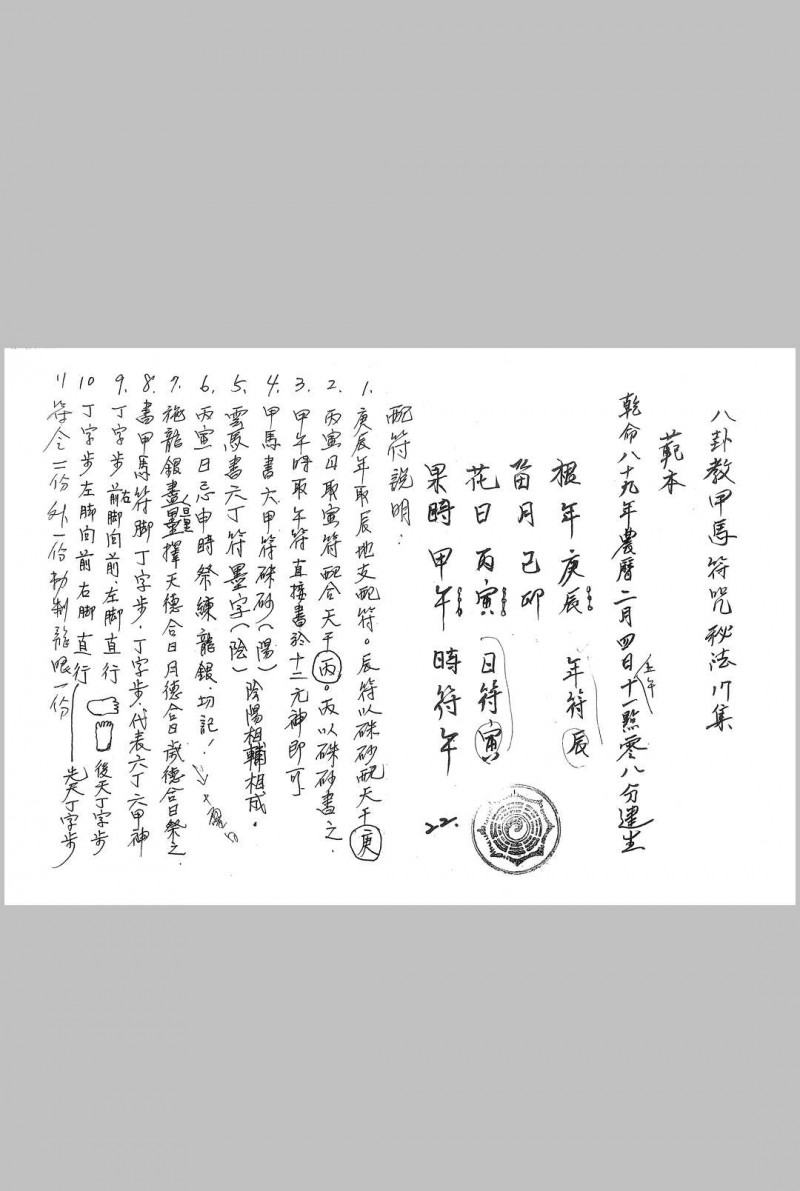 八卦教甲馬符咒秘法17集
範本
乾命八十九年農曆二月四日十一點零八分建生
壬午
根年庚辰 年符辰
苗月己卯
花日丙寅 日符寅
果時甲午 時符午
22.
配符說明：
1. 庚辰年取辰地支配符。辰符以硃砂配天干庚
2. 丙寅日取寅符配合天干丙。丙以硃砂書之.
3. 甲午時取午符直接書於十二元神即可
4. 甲馬書六甲符硃砂(陽)
5. 雲馬書六丁符墨字(陰)
陰陽相輔相成。
6. 丙寅日忌申時祭練龍銀.切記!
7. 施龍銀盡量擇天德合日月德合日歲德合日祭之.
8. 書甲馬符腳丁字步,丁字步代表六丁六甲神
9. 丁字步前右腳向前.左腳直行 後天丁字步
10 丁字步左腳向前右腳直行 先天丁字步
11 符令一份外一份勅制龍眼一份